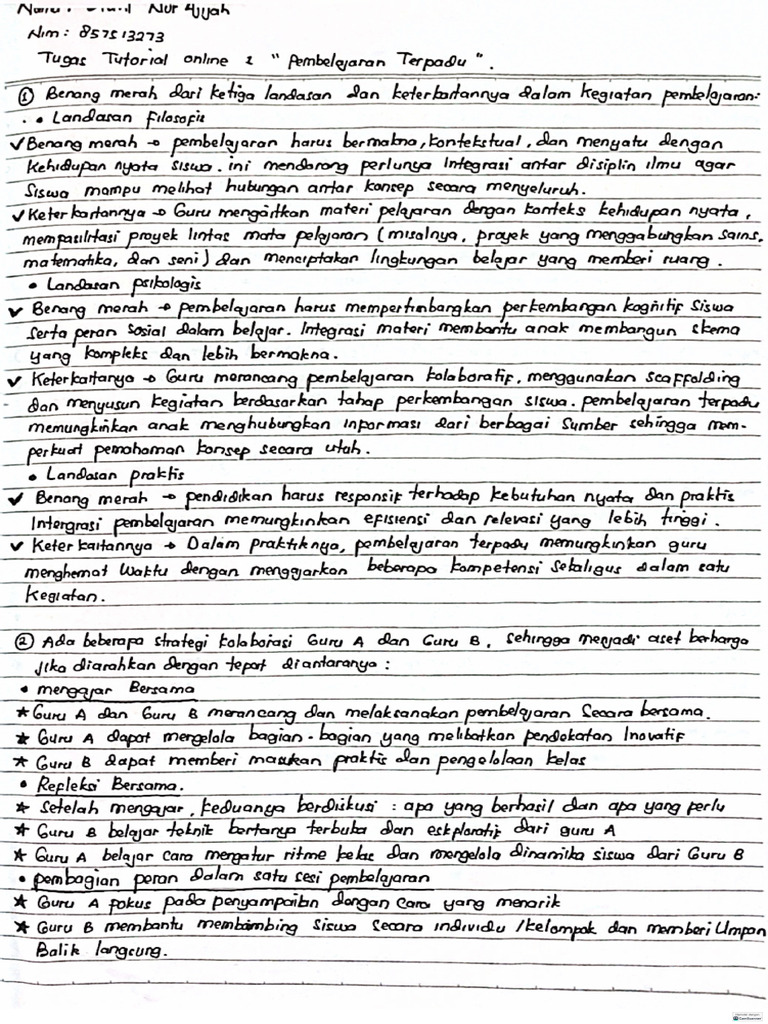 Nur Ayyah
Nim : 857513273
Tugas Tutorial online 2 " Pembelajaran Terpadu ".
① Benang merah dari ketiga landasan dan keterkaitannya dalam kegiatan pembelajaran:
• Landasan filosofis
✓ Benang merah → pembelajaran harus bermakna, kontekstual, dan menyatu dengan
kehidupan nyata siswa. ini mendorong perlunya Integrasi antar disiplin ilmu agar
Siswa mampu melihat hubungan antar konsep secara menyeluruh.
✓ Keterkaitannya → Guru mengaitkan materi pelajaran dengan konteks kehidupan nyata,
mempasilitasi proyek lintas mata pelajaran (misalnya, proyek yang menggabungkan sains,
matematika, dan seni) dan menciptakan lingkungan belajar yang memberi ruang.
• Landasan psikologis
✓ Benang merah → pembelajaran harus mempertimbangkan perkembangan kognitif siswa
serta peran sosial dalam belajar. Integrasi materi membantu anak membangun skema
yang kompleks dan lebih bermakna.
✓ Keterkaitanya → Guru merancang pembelajaran kolaboratif, menggunakan scaffolding
dan menyusun kegiatan berdasarkan tahap perkembangan siswa. pembelajaran terpadu
memungkinkan anak menghubungkan informasi dari berbagai sumber sehingga mem-
perkuat pemahaman konsep secara utuh.
• Landasan praktis
✓ Benang merah → pendidikan harus responsif terhadap kebutuhan nyata dan praktis
Intergrasi pembelajaran memungkinkan efisiensi dan relevasi yang lebih tinggi.
✓ Keterkaitannya → Dalam praktiknya, pembelajaran terpadu memungkinkan guru
menghemat waktu dengan mengajarkan beberapa kompetensi sekaligus dalam satu
kegiatan.
② Ada beberapa strategi kolaborasi Guru A dan Guru B, sehingga menjadi aset berharga
jika diarahkan dengan tepat diantaranya :
• mengajar Bersama
★ Guru A dan Guru B merancang dan melaksanakan pembelajaran secara bersama.
★ Guru A dapat mengelola bagian-bagian yang melibatkan pendekatan Inovatif
★ Guru B dapat memberi masukan praktis dan pengelolaan kelas
• Repleksi Bersama.
★ Setelah mengajar, keduanya berdiskusi : apa yang berhasil dan apa yang perlu
★ Guru B belajar teknik bertanya terbuka dan eskploratif dari guru A
★ Guru A belajar cara mengatur ritme kelas dan mengelola dinamika siswa dari Guru B
• pembagian peran dalam satu sesi pembelajaran
★ Guru A fokus pada penyampaian dengan cara yang menarik
★ Guru B membantu membimbing siswa secara individu / kelompok dan memberi Umpan
Balik langsung.